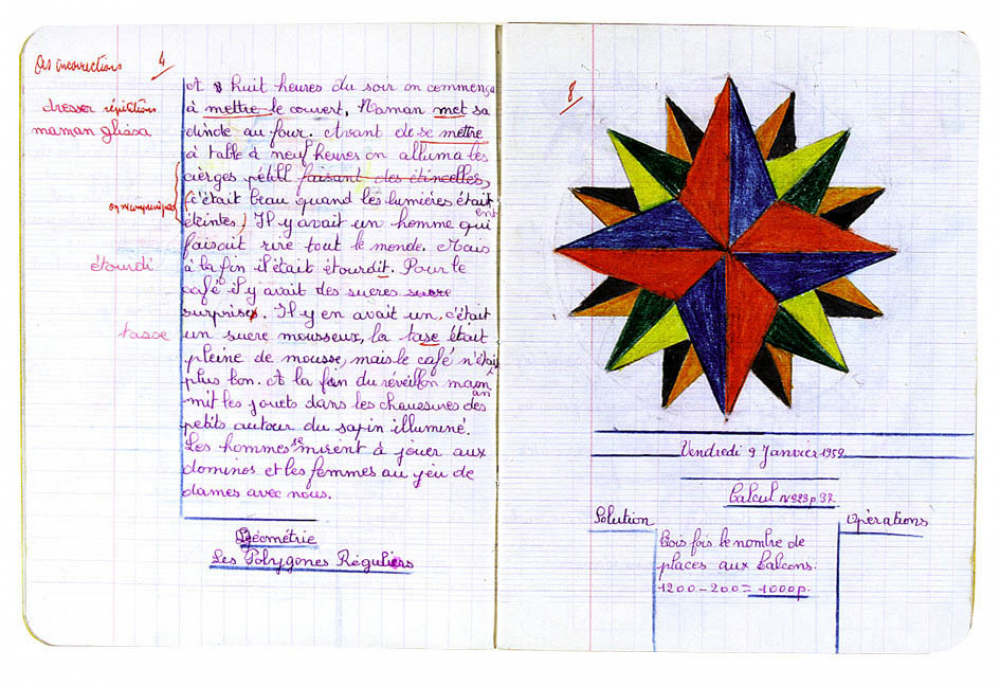 Des incorrections 4
A 8 huit heures du soir on commença
à mettre le couvert, Maman met sa
dresser répétitions
dinde au four. Avant de se mettre
maman glissa
à table à neuf heures on alluma les
cierges pétill faisant des étincelles,
(c'était beau quand les lumières était
ent
éteintes) Il y avait un homme qui
faisait rire tout le monde. Mais
étourdi
à la fin il était étourdit. Pour le
café il y avait des sucres sucre
surprises. Il y en avait un, c'était
tasse
un sucre mousseux, la tase était
pleine de mousse, mais le café n'était
plus bon. A la fin du réveillon mam
an
mit les jouets dans les chaussures des
petits autour du sapin illuminé.
Les hommes se mirent à jouer aux
dominos et les femmes au jeu de
dames avec nous.
Géométrie
Les Polygones Réguliers
8
Vendredi 9 Janvier 1959
Calcul N°323 p. 97.
Solution
Opérations
Trois fois le nombre de
places aux balcons.
1200 - 200 = 1000 p.